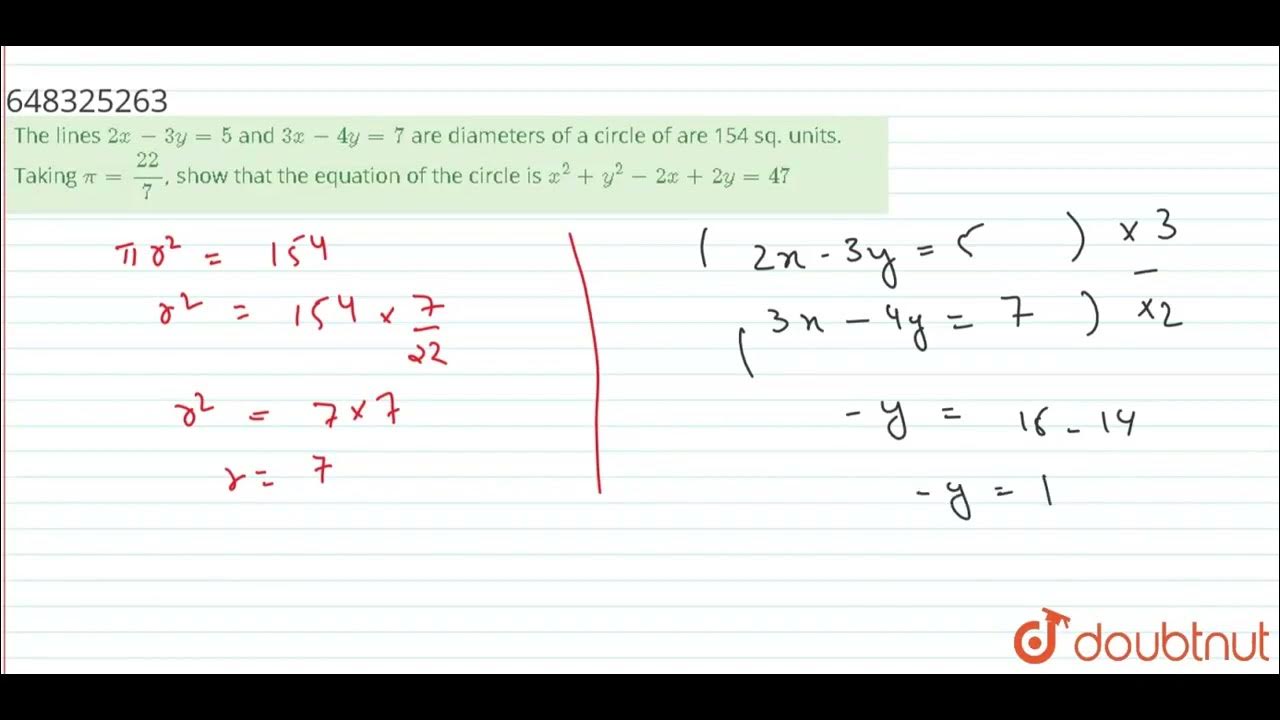 648325263
The lines 2x − 3y = 5 and 3x − 4y = 7 are diameters of a circle of are 154 sq. units.
Taking π = 22/7, show that the equation of the circle is x² + y² − 2x + 2y = 47
πr² = 154
r² = 154 × 7/22
r² = 7 × 7
r = 7
( 2x - 3y = 5 ) × 3
( 3x - 4y = 7 ) × 2
- y = 15 - 14
- y = 1
doubtnut